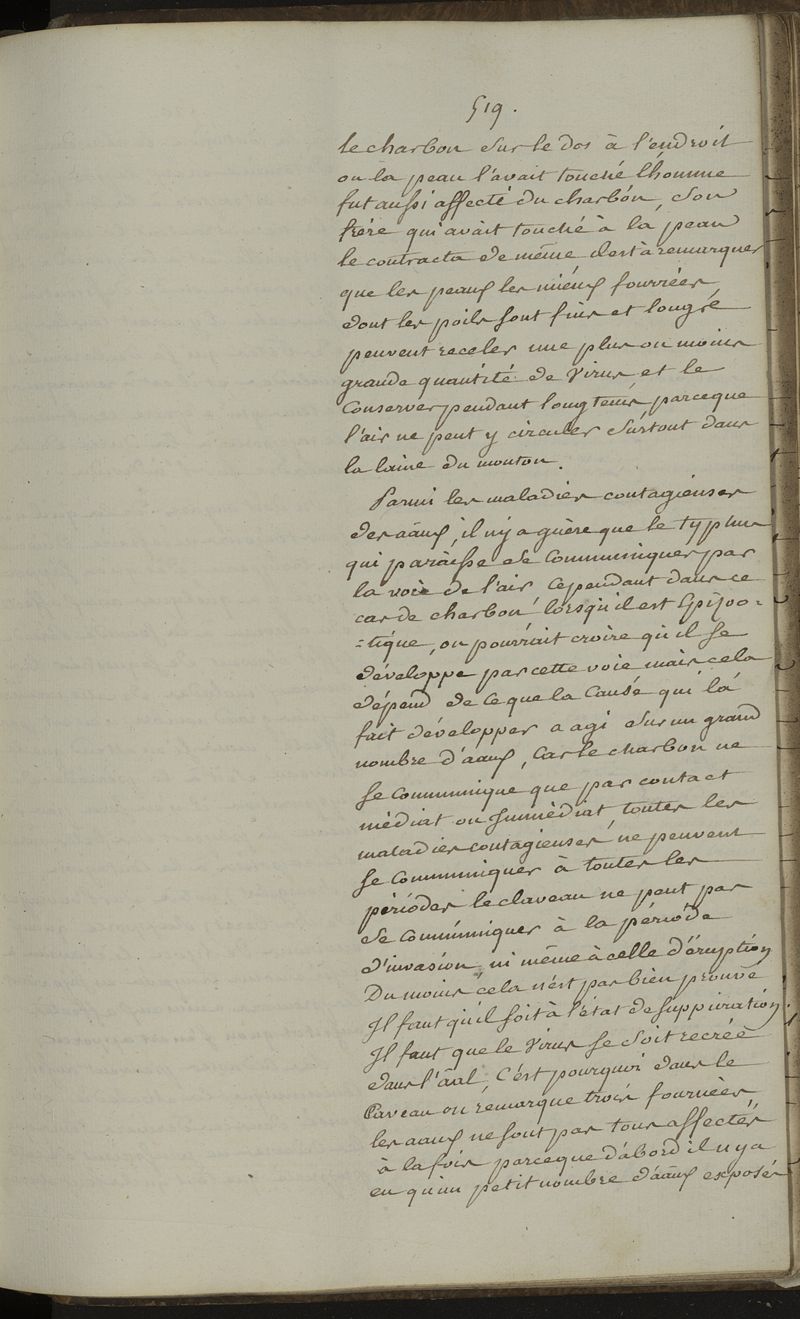 519.
le charbon sur le dos à l'endroit
ou la peau l'avait touché l'homme
fut aussi affecté du charbon, son
frère qui avait touché à la peau
le contracta de même il est à remarquer
que les peaux les mieux fourrées
dont les poils sont fins et longs
peuvent receler une plus ou moins
grande quantité de Virus et le
Conserver pendant longtems parceque
l'air ne peut y circuler surtout dans
la laine du mouton.
Parmi les maladies contagieuses
des aaux, il n'y a guère que le typhus
qui paraisse se Communiquer par
la voie de l'air Cependant dans ce
cas de charbon lorsqu'il est Epizoo=
=tique, on pourrait croire qu'il se
développe par cette voie mais cela
dépend de ce que la Cause qui la
fait développer a agi sur un grand
nombre d'aaux, Car le charbon ne
se Communique que par contact
médiat ou Immédiat, toutes les
maladies contagieuses ne peuvent
se Communiquer à toutes les
périodes le claveau ne peut pas
se Communiquer à la période
d'invasion ni même à celle d'éruption
Du moins cela n'est pas bien prouvé
Il faut qu'il soit à l'état de suppuration
Il faut que le Virus se soit recréé
dans l'aal, C'est pourquoi dans le
Claveau on remarque trois fournées,
les aaux ne sont pas tous affectés
à la fois parceque d'abord il n'y a
eu qu'un petit nombre d'aaux exposés